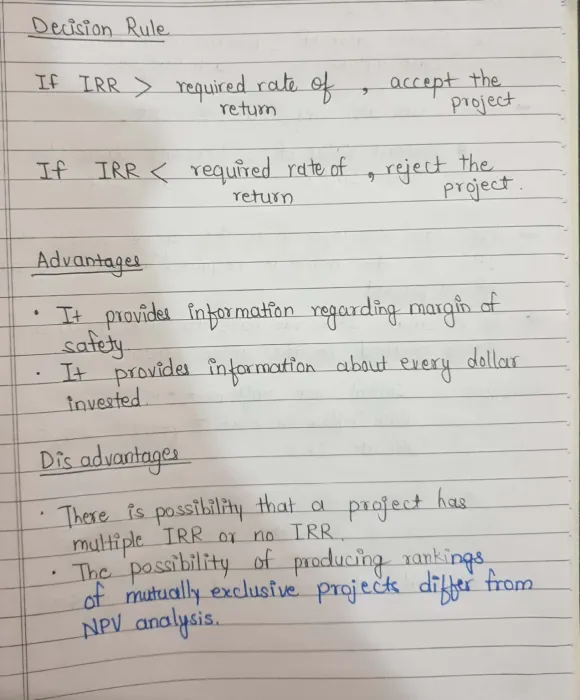 Decision Rule
If IRR > required rate of , accept the
return project
If IRR < required rate of , reject the
return project.
Advantages
• It provides information regarding margin of
safety.
• It provides information about every dollar
invested.
Dis advantages
• There is possibility that a project has
multiple IRR or no IRR.
• The possibility of producing rankings
of mutually exclusive projects differ from
NPV analysis.